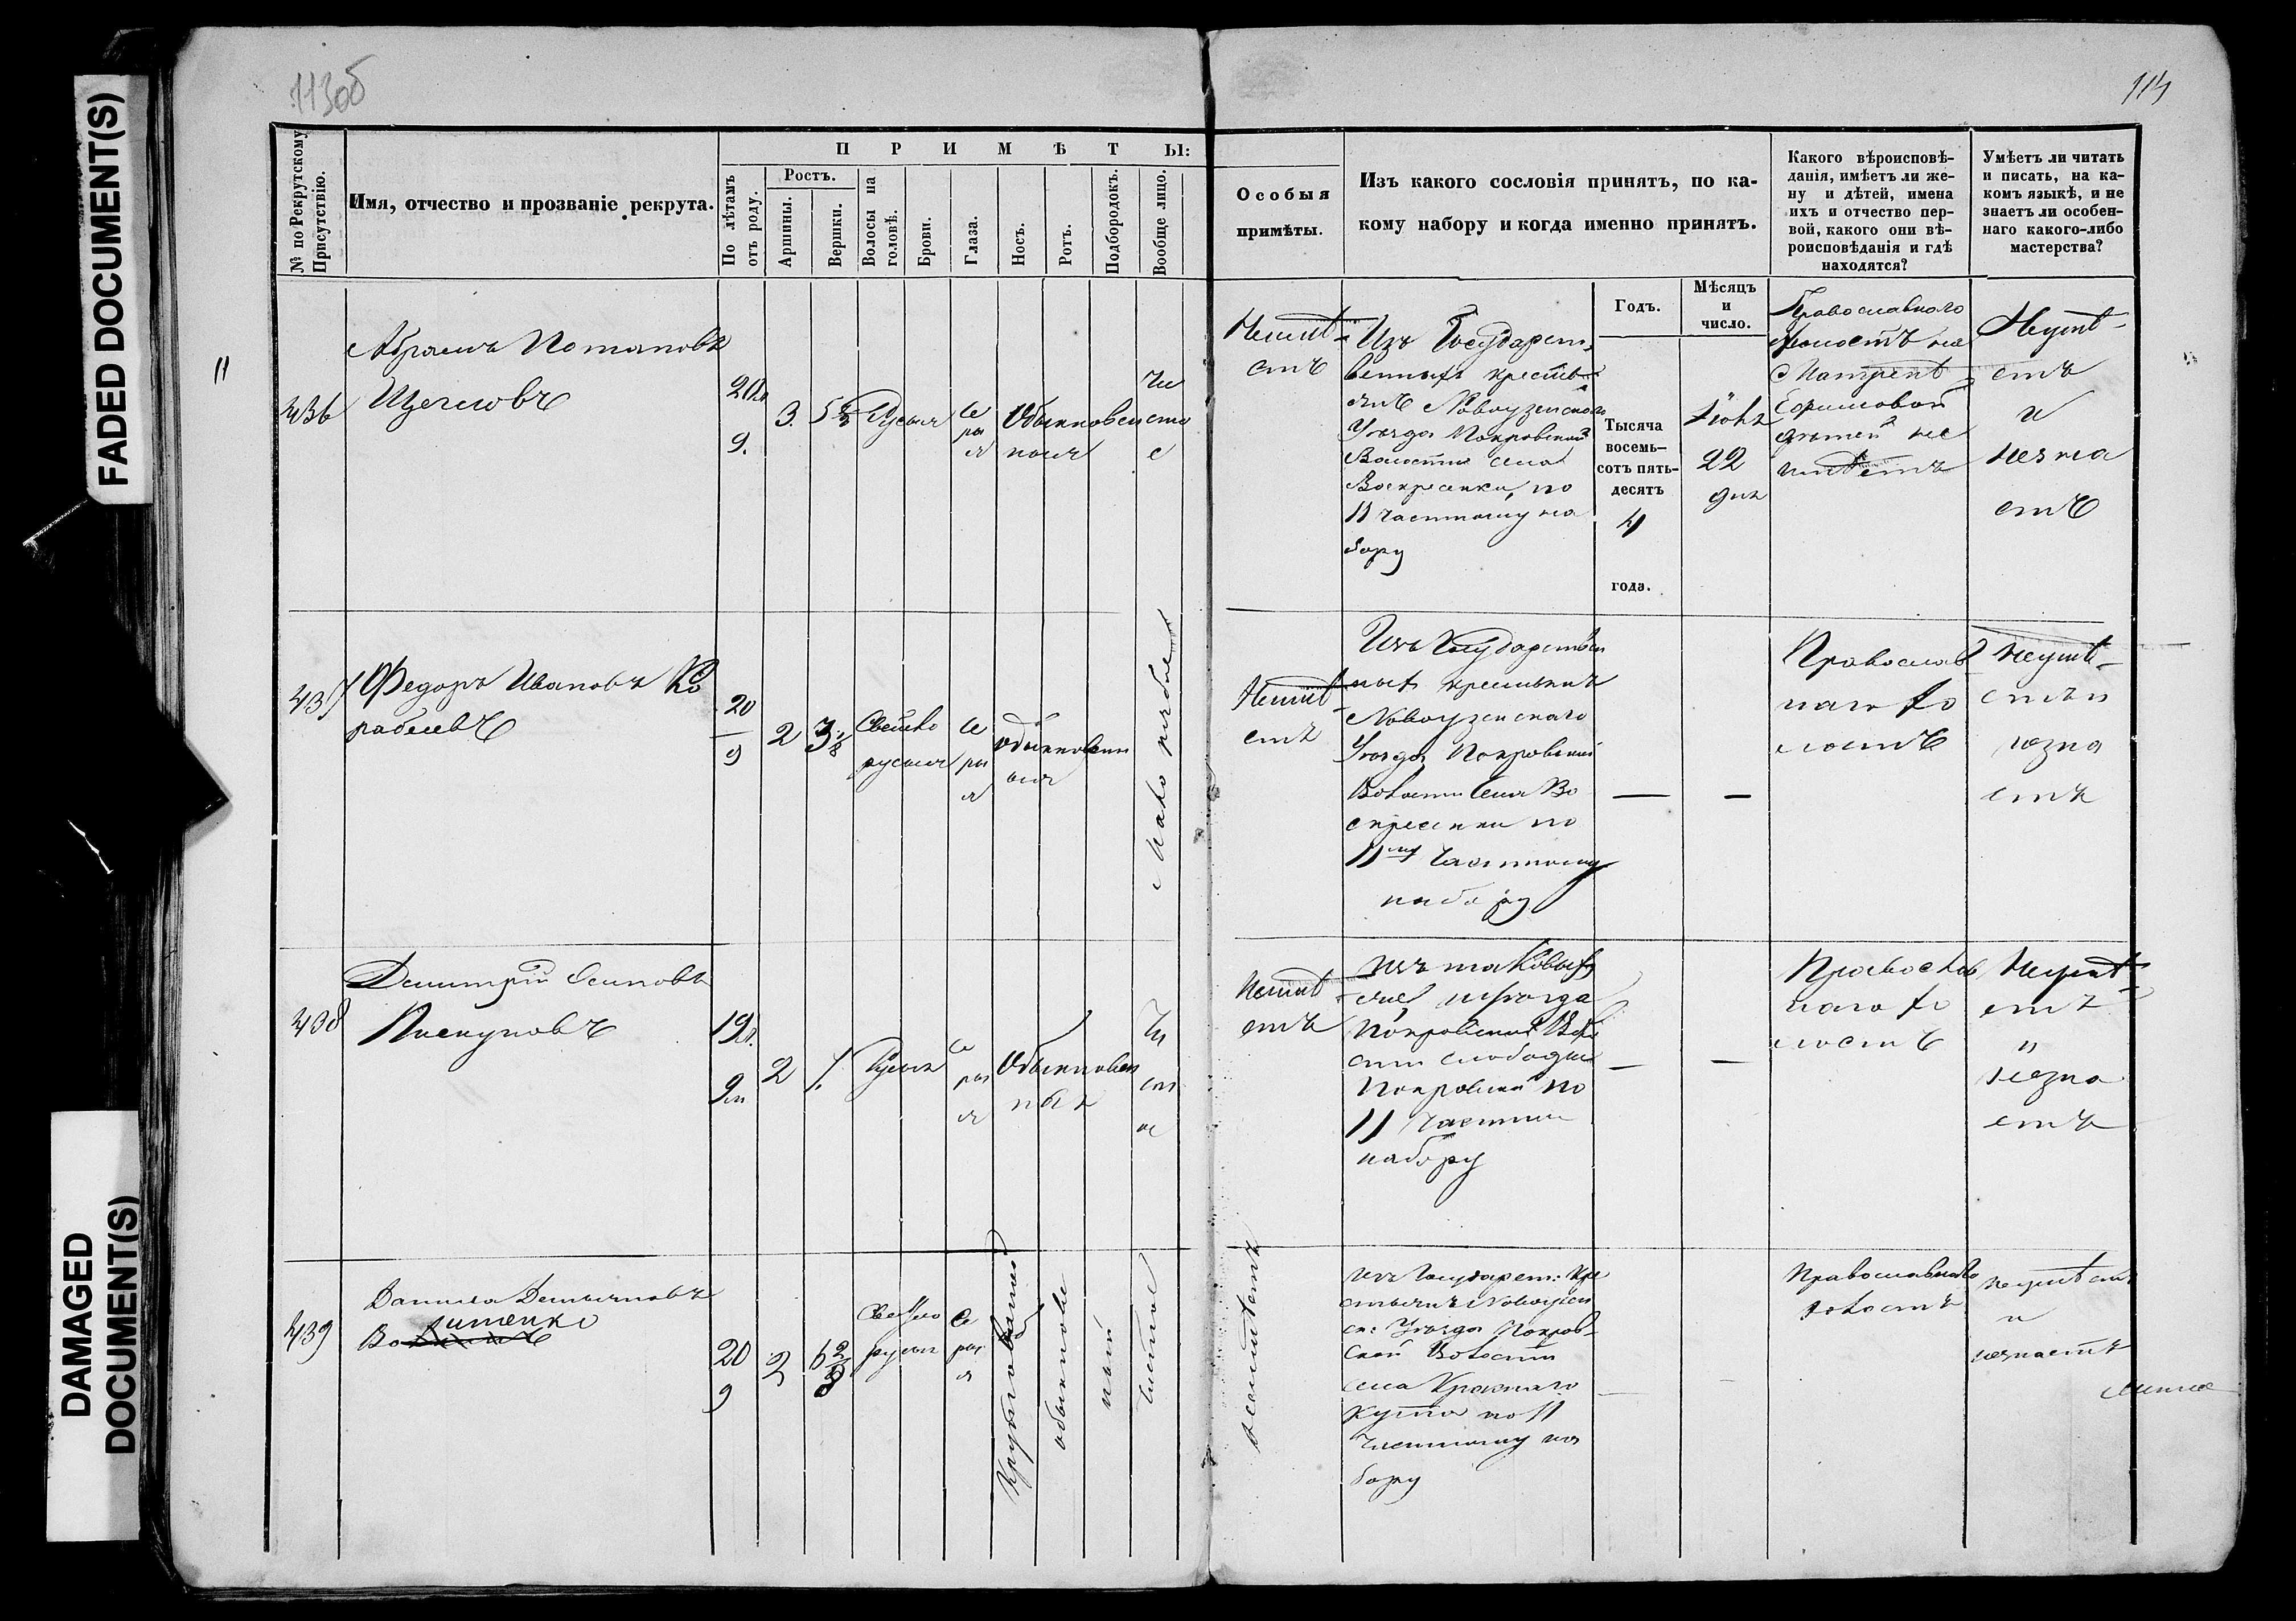 FADED DOCUMENT(S)
DAMAGED
DOCUMENT(S)
113об
114
№ по Рекрутскому
Присутствію.
Имя, отчество и прозваніе рекрута.
П Р И М Ѣ Т Ы:
По лѣтамъ
отъ роду.
Ростъ.
Аршины.
Вершки.
Волосы на
головѣ.
Брови.
Глаза.
Носъ.
Ротъ.
Подбородокъ.
Вообще лицо.
Особыя
примѣты.
Изъ какого сословія принятъ, по ка-
кому набору и когда именно принятъ.
Какого вѣроисповѣ-
данія, имѣетъ ли же-
ну и дѣтей, имена
ихъ и отчество пер-
вой, какого они вѣ-
роисповѣданія и гдѣ
находятся?
Умѣетъ ли читать
и писать, на ка-
комъ языкѣ, и не
знаетъ ли особен-
наго какого-либо
мастерства?
Годъ.
Мѣсяцъ
и
число.
436
Абрамъ Потаповъ
20
9.
3.
5
Русыя
се
ры
я
Обыкновен
ныя
Чи
сто
е
Неимѣ
етъ
Изъ Государст
венныхъ кресть
янъ Новоузенскаго
Уѣзда Покровской
Волости села
Воскресенки, по
11 частному на
бору
Тысяча
восемь-
сотъ пять-
десятъ
4
года.
22
дня
Православнаго
женатъ на
Матренѣ
Ефимовой
дѣтей не
имѣетъ
Неумѣ
етъ
и
незна
етъ
437
Федоръ Ивановъ Ко
раблевъ
20
9
2
3
Светло
русыя
се
ры
я
обыкновенн
ыя
Неимѣ
етъ
Изъ Государствен
ныхъ крестьянъ
Новоузенскаго
Уѣзда Покровской
Волости Села Во
скресенки по
11му Частному
набору
Православ
наго хо
лостъ
Неумѣ
етъ и
незна
етъ
438
Дмитрій Осиповъ
Пискуновъ
19л.
9м
2
7.
Русыя
се
ры
я
Обыкновен
ныя
Чи
ст
ое
Неимѣ
етъ
изъ таковыхъ
же уѣзда
Покровской Воло
сти слободы
Покровской по
11 Частному
набору
Православ
наго хо
лостъ
Неумѣ
етъ
и
незна
етъ
439
Данила Дементьевъ
20
9
2
6 2/8
Светло
русыя
Се
рыя
обыкнове
ный
чистое
неимѣетъ
изъ Государст: Кре
стьянъ Новоузен
ск: Уѣзда Покров-
ской Волости
села Краснаго
Кута по 11
Частному на
бору
Православнаго
холостъ
неумѣетъ
и
незнаетъ